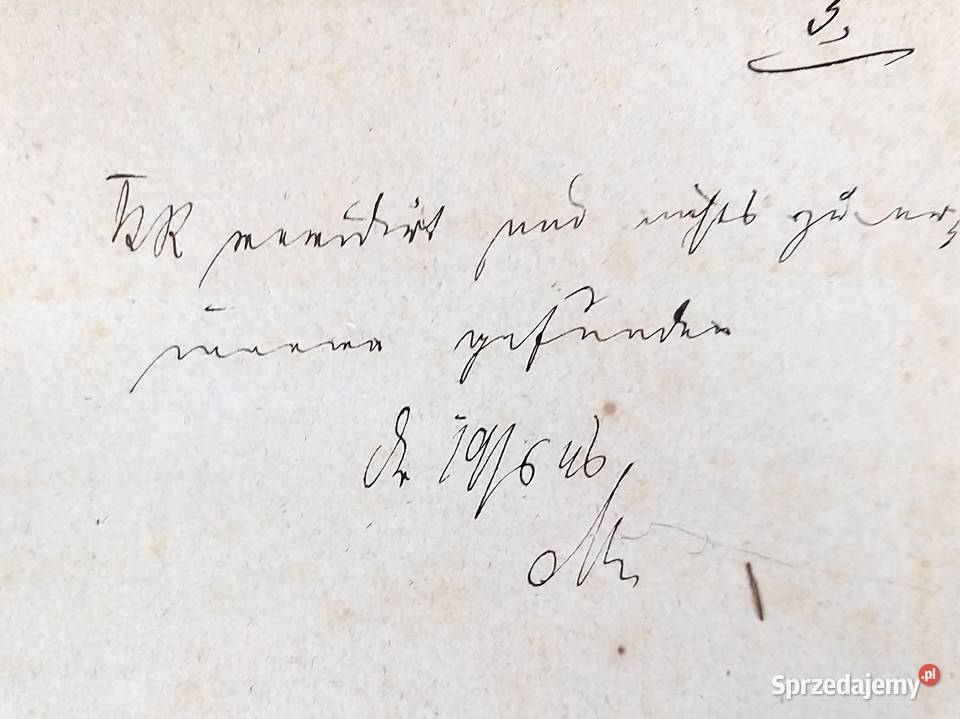 3.
revidirt und nichts zu er=
innern gefunden
d 19/6 46
Sprzedajemy.pl